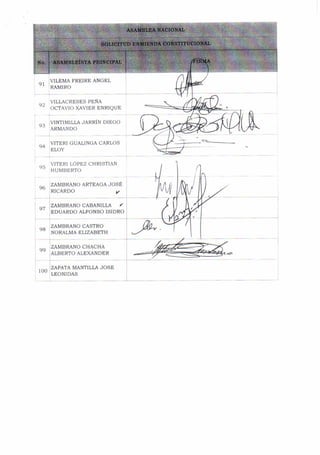 ASAMBLEA NACIONAL
SOLICITUD ENMIENDA CONSTITUCIONAL
No. ASAMBLEÍSTA PRINCIPAL FIRMA
91 VILEMA FREIRE ANGEL
RAMIRO
92 VILLACRESES PEÑA
OCTAVIO XAVIER ENRIQUE
93 VINTIMILLA JARRÍN DIEGO
ARMANDO
94 VITERI GUALINGA CARLOS
ELOY
95 VITERI LÓPEZ CHRISTIAN
HUMBERTO
96 ZAMBRANO ARTEAGA JOSÉ
RICARDO
97 ZAMBRANO CABANILLA
EDUARDO ALFONSO ISIDRO
98 ZAMBRANO CASTRO
NORALMA ELIZABETH
99 ZAMBRANO CHACHA
ALBERTO ALEXANDER
100 ZAPATA MANTILLA JOSE
LEONIDAS